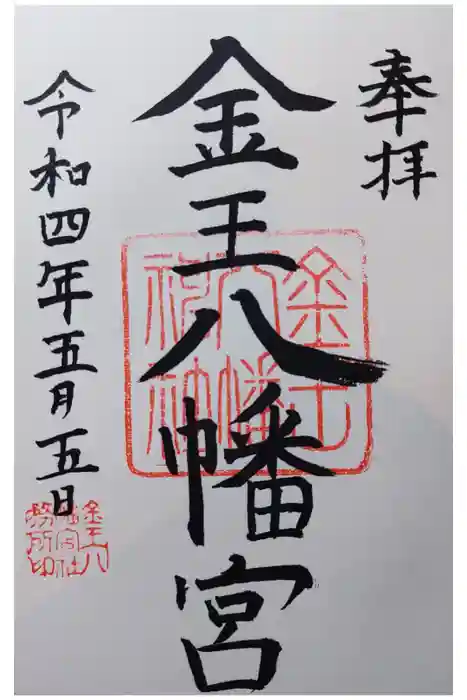 奉拝
金王八幡宮
令和四年五月五日
金王
八幡
神社
金王八
幡宮社
務所印